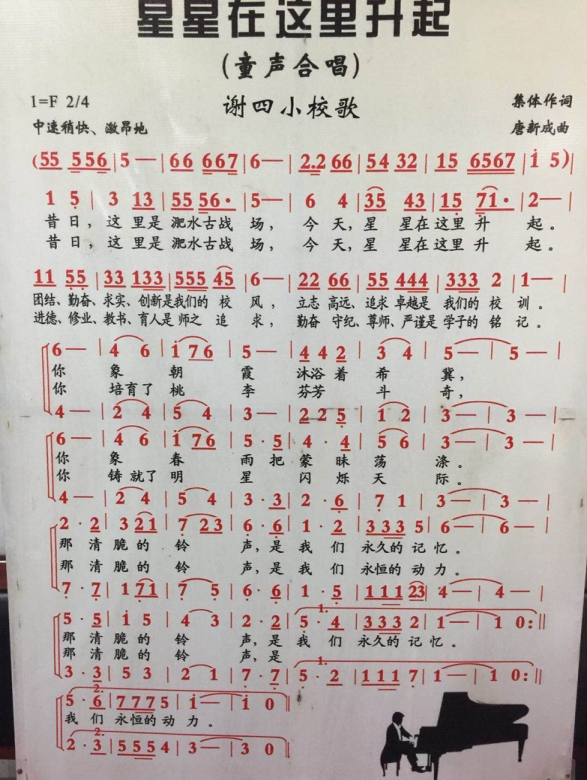 星星在这里升起
(童声合唱)
1=F 2/4 谢四小校歌 集体作词
中速稍快、激昂地 唐新成曲
(55 556 | 5 — | 66 667 | 6 — | 2.2 66 | 54 32 | 15 6567 | i 5) |
1 5 | 3 13 | 55 56· | 5 — | 6 4 | 35 43 | 15 71· | 2 — |
昔日，这里是淝水古战场，今天，星星在这里升起。
昔日，这里是淝水古战场，今天，星星在这里升起。
11 55 | 33 133 | 555 45 | 6 — | 22 66 | 55 444 | 333 2 | 1 — |
团结、勤奋、求实、创新是我们的校风，立志高远、追求卓越是我们的校训。
进德、修业、教书、育人是师之追求，勤奋守纪、尊师、严谨是学子的铭记。
6 — | 4 6 | i 76 | 5 — | 4 4 2 | 3 4 | 5 — | 5 — |
你象朝霞沐浴着希冀，
你培育了桃李芬芳斗奇，
4 — | 2 4 | 5 4 | 3 — | 2 2 5 | 1 2 | 3 — | 3 — |
6 — | 4 6 | i 76 | 5 · 5 | 4 · 4 | 5 6 | 3 — | 3 — |
你象春雨把蒙昧荡涤。
你铸就了明星闪烁天际。
4 — | 2 4 | 5 4 | 3 · 3 | 2 · 6 | 7 1 | 3 — | 3 — |
2 · 2 | 3 21 | 7 23 | 6 · 6 | 1 · 2 | 333 5 | 6 — | 6 — |
那清脆的铃声，是我们永久的记忆。
那清脆的铃声，是我们永恒的动力。
7 · 7 | 1 71 | 7 5 | 6 · 6 | 1 · 5 | 111 23 | 4 — | 4 — |
5 · 5 | 1 5 | 4 3 | 2 · 2 | 5 · 4 | 333 2 | 1 — | 1 0 :||
那清脆的铃声，是我们永久的记忆。
那清脆的铃声，是
3 · 3 | 5 3 | 2 1 | 7 · 7 | 5 · 2 | 111 7 | 1 — | 1 0 :||
5 · 6 | 777 5 | i — | i 0 ||
我们永恒的动力。
2 · 3 | 555 4 | 3 — | 3 0 ||